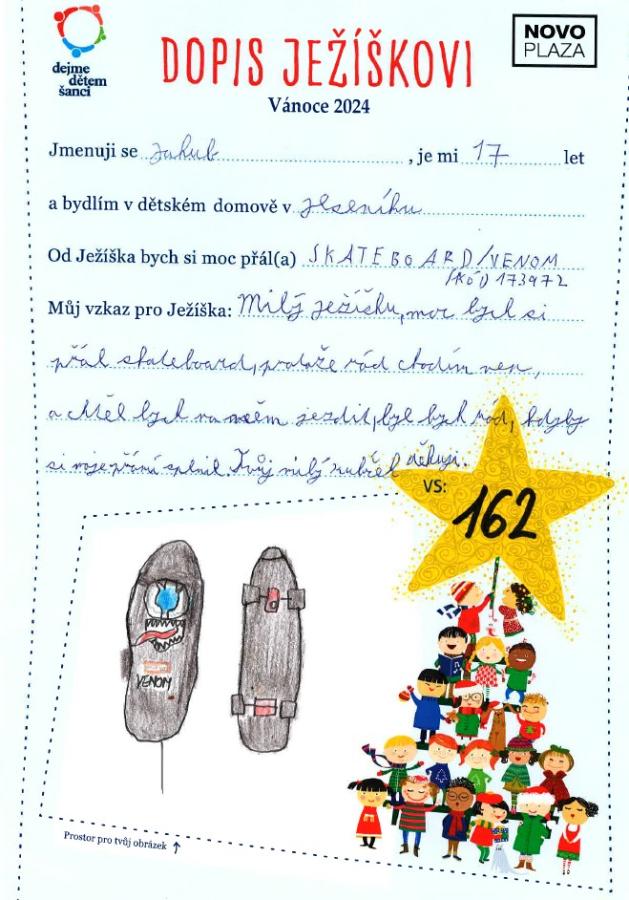 dejme
dětem
šanci
DOPIS JEŽÍŠKOVI
NOVO
PLAZA
Vánoce 2024
Jmenuji se Jakub, je mi 17 let
a bydlím v dětském domově v Jeseníku
Od Ježíška bych si moc přál(a) SKATEBOARD/VENOM
(KÓD) 173972
Můj vzkaz pro Ježíška: Milý Ježíšku, moc bych si
přál skateboard, protože rád chodím ven,
a chtěl bych na něm jezdit, byl bych rád, kdyby
si moje přání splnil. Tvůj milý děkuji.
VS: 162
VENOM
Prostor pro tvůj obrázek ↑